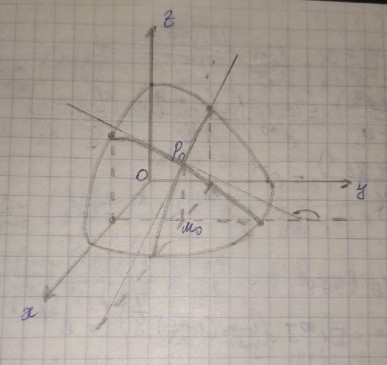 z
P₀
O
y
M₀
x